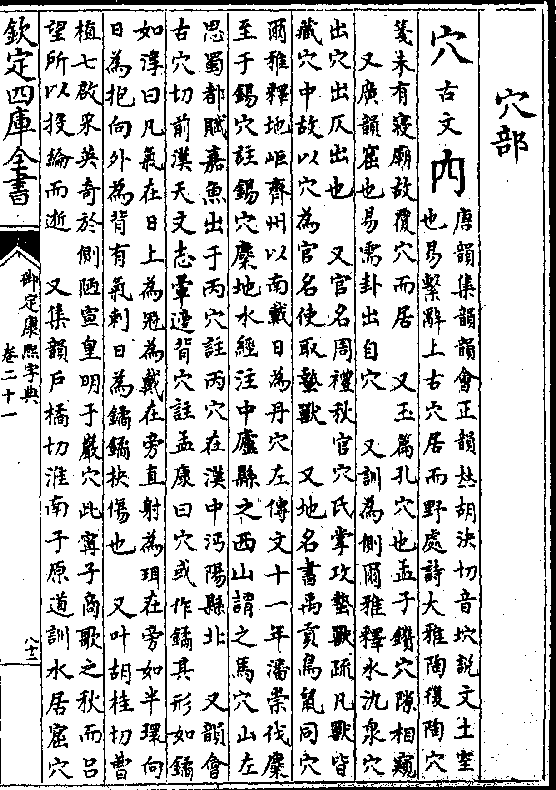 穴部
穴 古文 內
唐韻集韻韻會正韻𠀤胡決切音坹說文土室
也易繫辭上古穴居而野處詩大雅陶復陶穴
箋未有寢廟故覆穴而居 又玉篇孔穴也孟子鑽穴隙相窺
又廣韻窟也易需卦出自穴 又訓為側爾雅釋水氿泉穴
出穴出仄出也 又官名周禮秋官穴氏掌攻蟄獸疏凡獸皆
藏穴中故以穴為官名使取蟄獸 又地名書禹貢鳥鼠同穴
爾雅釋地岠齊州以南戴日為丹穴左傳文十一年潘崇伐麋
至于錫穴註錫穴麋地水經注中廬縣之西山謂之馬穴山左
思蜀都賦嘉魚出于丙穴註丙穴在漢中沔陽縣北 又韻會
古穴切前漢天文志暈適背穴註孟康曰穴或作鐍其形如鐍
如淳曰凡氣在日上為冠為戴在旁直射為珥在旁如半環向
日為抱向外為背有氣刺日為鐍鐍抉傷也 又叶胡桂切曹
植七啟采英奇於側陋宣皇明于巖穴此寗子商歌之秋而呂
望所以投綸而逝 又集韻戶橘切淮南子原道訓水居窟穴
欽定四庫全書
御定康熙字典
卷二十一
八十三